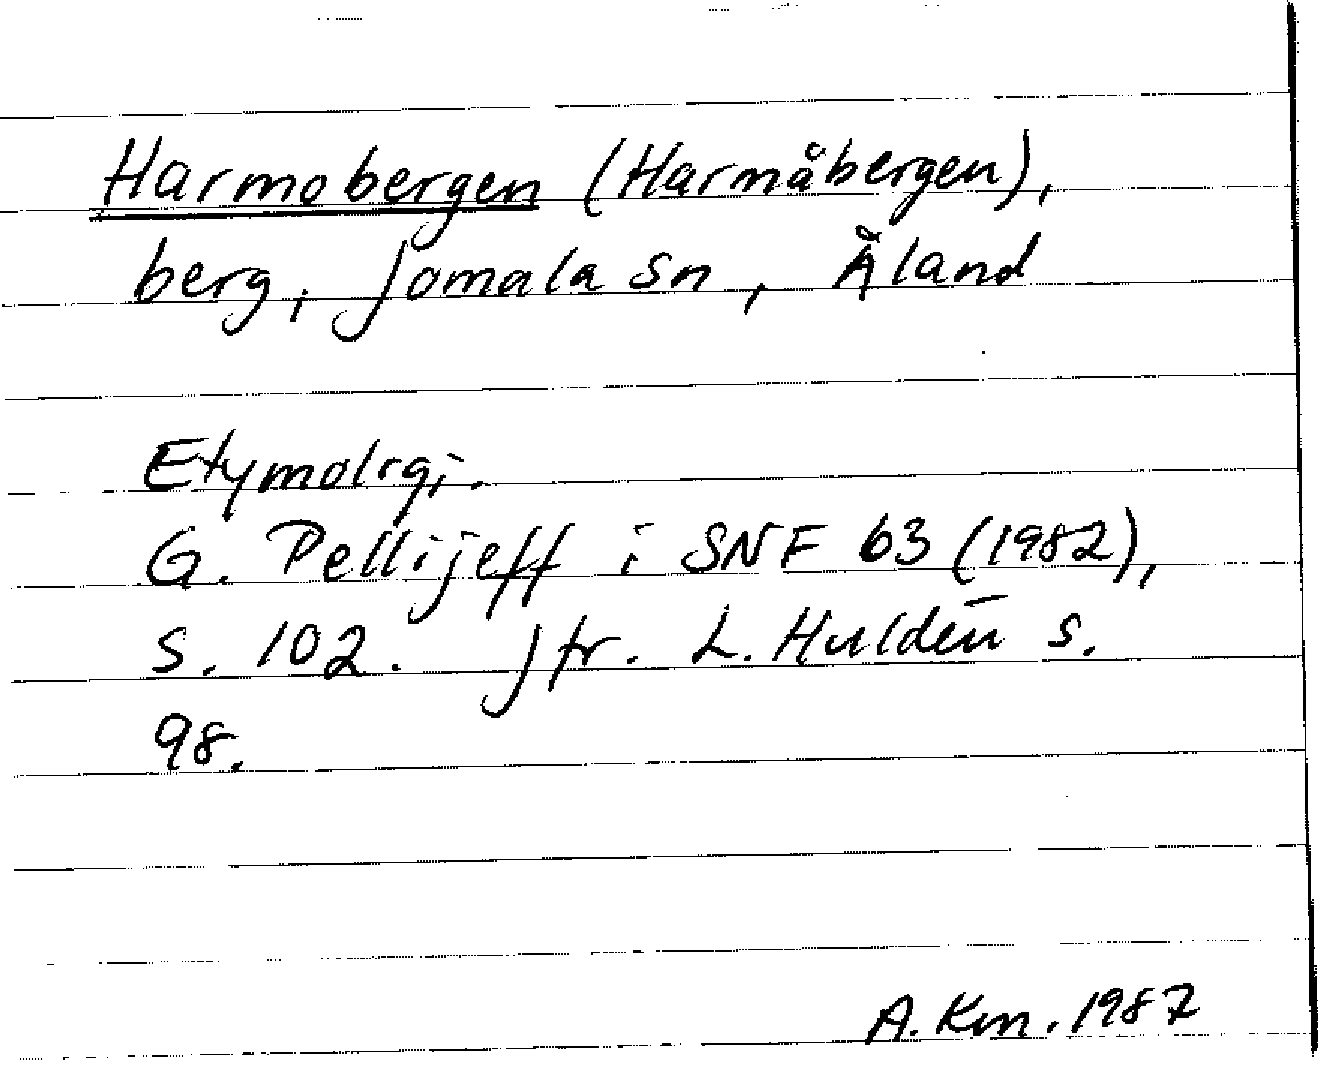 Harmobergen (Harmåbergen),
berg, Jomala sn, Åland
Etymologi.
G. Pellijeff i SNF 63 (1982),
s. 102. Jfr. L. Huldén s.
98.
A. Km. 1987